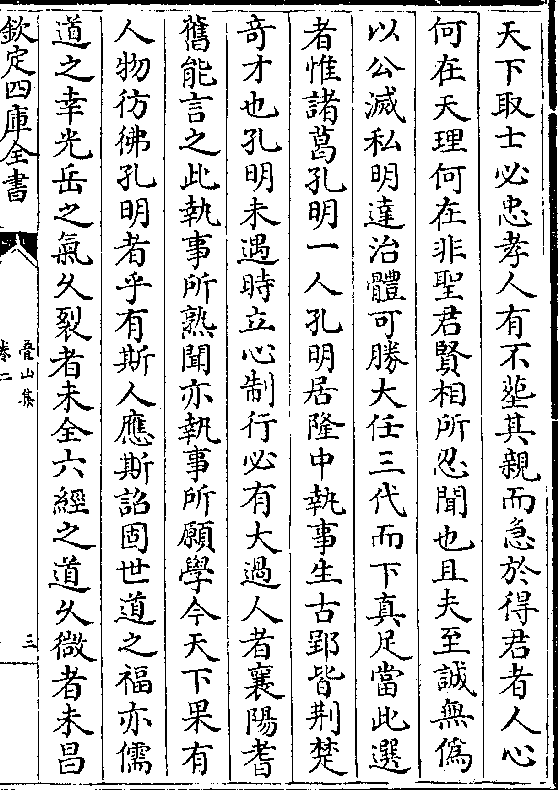 天下取士必忠孝人有不塟其親而急於得君者人心
何在天理何在非聖君賢相所忍聞也且夫至誠無僞
以公滅私明達治體可勝大任三代而下真足當此選
者惟諸葛孔明一人孔明居隆中執事生古郢皆荆楚
竒才也孔明未遇時立心制行必有大過人者襄陽耆
舊能言之此執事所熟聞亦執事所願學今天下果有
人物彷彿孔明者乎有斯人應斯詔固世道之福亦儒
道之幸光岳之氣乆裂者未全六經之道乆微者未昌
欽定四庫全書
疊山集
卷二
三